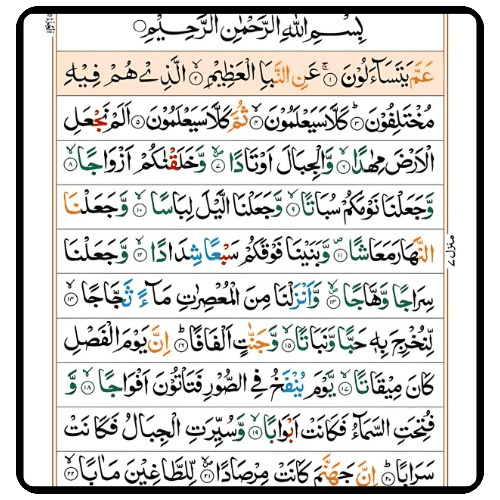 بِسْمِ اللّٰهِ الرَّحْمٰنِ الرَّحِيْمِ
عَمَّ يَتَسَآءَلُوْنَ ۚ﴿۱﴾ عَنِ النَّبَاِ الْعَظِيْمِ ۙ﴿۲﴾ الَّذِيْ هُمْ فِيْهِ
مُخْتَلِفُوْنَ ؕ﴿۳﴾ كَلَّا سَيَعْلَمُوْنَ ۙ﴿۴﴾ ثُمَّ كَلَّا سَيَعْلَمُوْنَ ﴿۵﴾ اَلَمْ نَجْعَلِ
الْاَرْضَ مِهٰدًا ۙ﴿۶﴾ وَّالْجِبَالَ اَوْتَادًا ۪ۙ﴿۷﴾ وَّخَلَقْنٰكُمْ اَزْوَاجًا ۙ﴿۸﴾
وَّجَعَلْنَا نَوْمَكُمْ سُبَاتًا ۙ﴿۹﴾ وَّجَعَلْنَا الَّيْلَ لِبَاسًا ۙ﴿۱۰﴾ وَّجَعَلْنَا
النَّهَارَ مَعَاشًا ۪﴿۱۱﴾ وَّبَنَيْنَا فَوْقَكُمْ سَبْعًا شِدَادًا ۙ﴿۱۲﴾ وَّجَعَلْنَا
سِرَاجًا وَّهَّاجًا ۪ۙ﴿۱۳﴾ وَّاَنْزَلْنَا مِنَ الْمُعْصِرٰتِ مَآءً ثَجَّاجًا ۙ﴿۱۴﴾
لِّنُخْرِجَ بِهٖ حَبًّا وَّنَبَاتًا ۙ﴿۱۵﴾ وَّجَنّٰتٍ اَلْفَافًا ؕ﴿۱۶﴾ اِنَّ يَوْمَ الْفَصْلِ
كَانَ مِيْقَاتًا ۙ﴿۱۷﴾ يَّوْمَ يُنْفَخُ فِي الصُّوْرِ فَتَاْتُوْنَ اَفْوَاجًا ۙ﴿۱۸﴾ وَّ
فُتِحَتِ السَّمَآءُ فَكَانَتْ اَبْوَابًا ۙ﴿۱۹﴾ وَّسُيِّرَتِ الْجِبَالُ فَكَانَتْ
سَرَابًا ؕ﴿۲۰﴾ اِنَّ جَهَنَّمَ كَانَتْ مِرْصَادًا ۪ۙ﴿۲۱﴾ لِّلطَّاغِيْنَ مَاٰبًا ۙ﴿۲۲﴾
منزل ۷